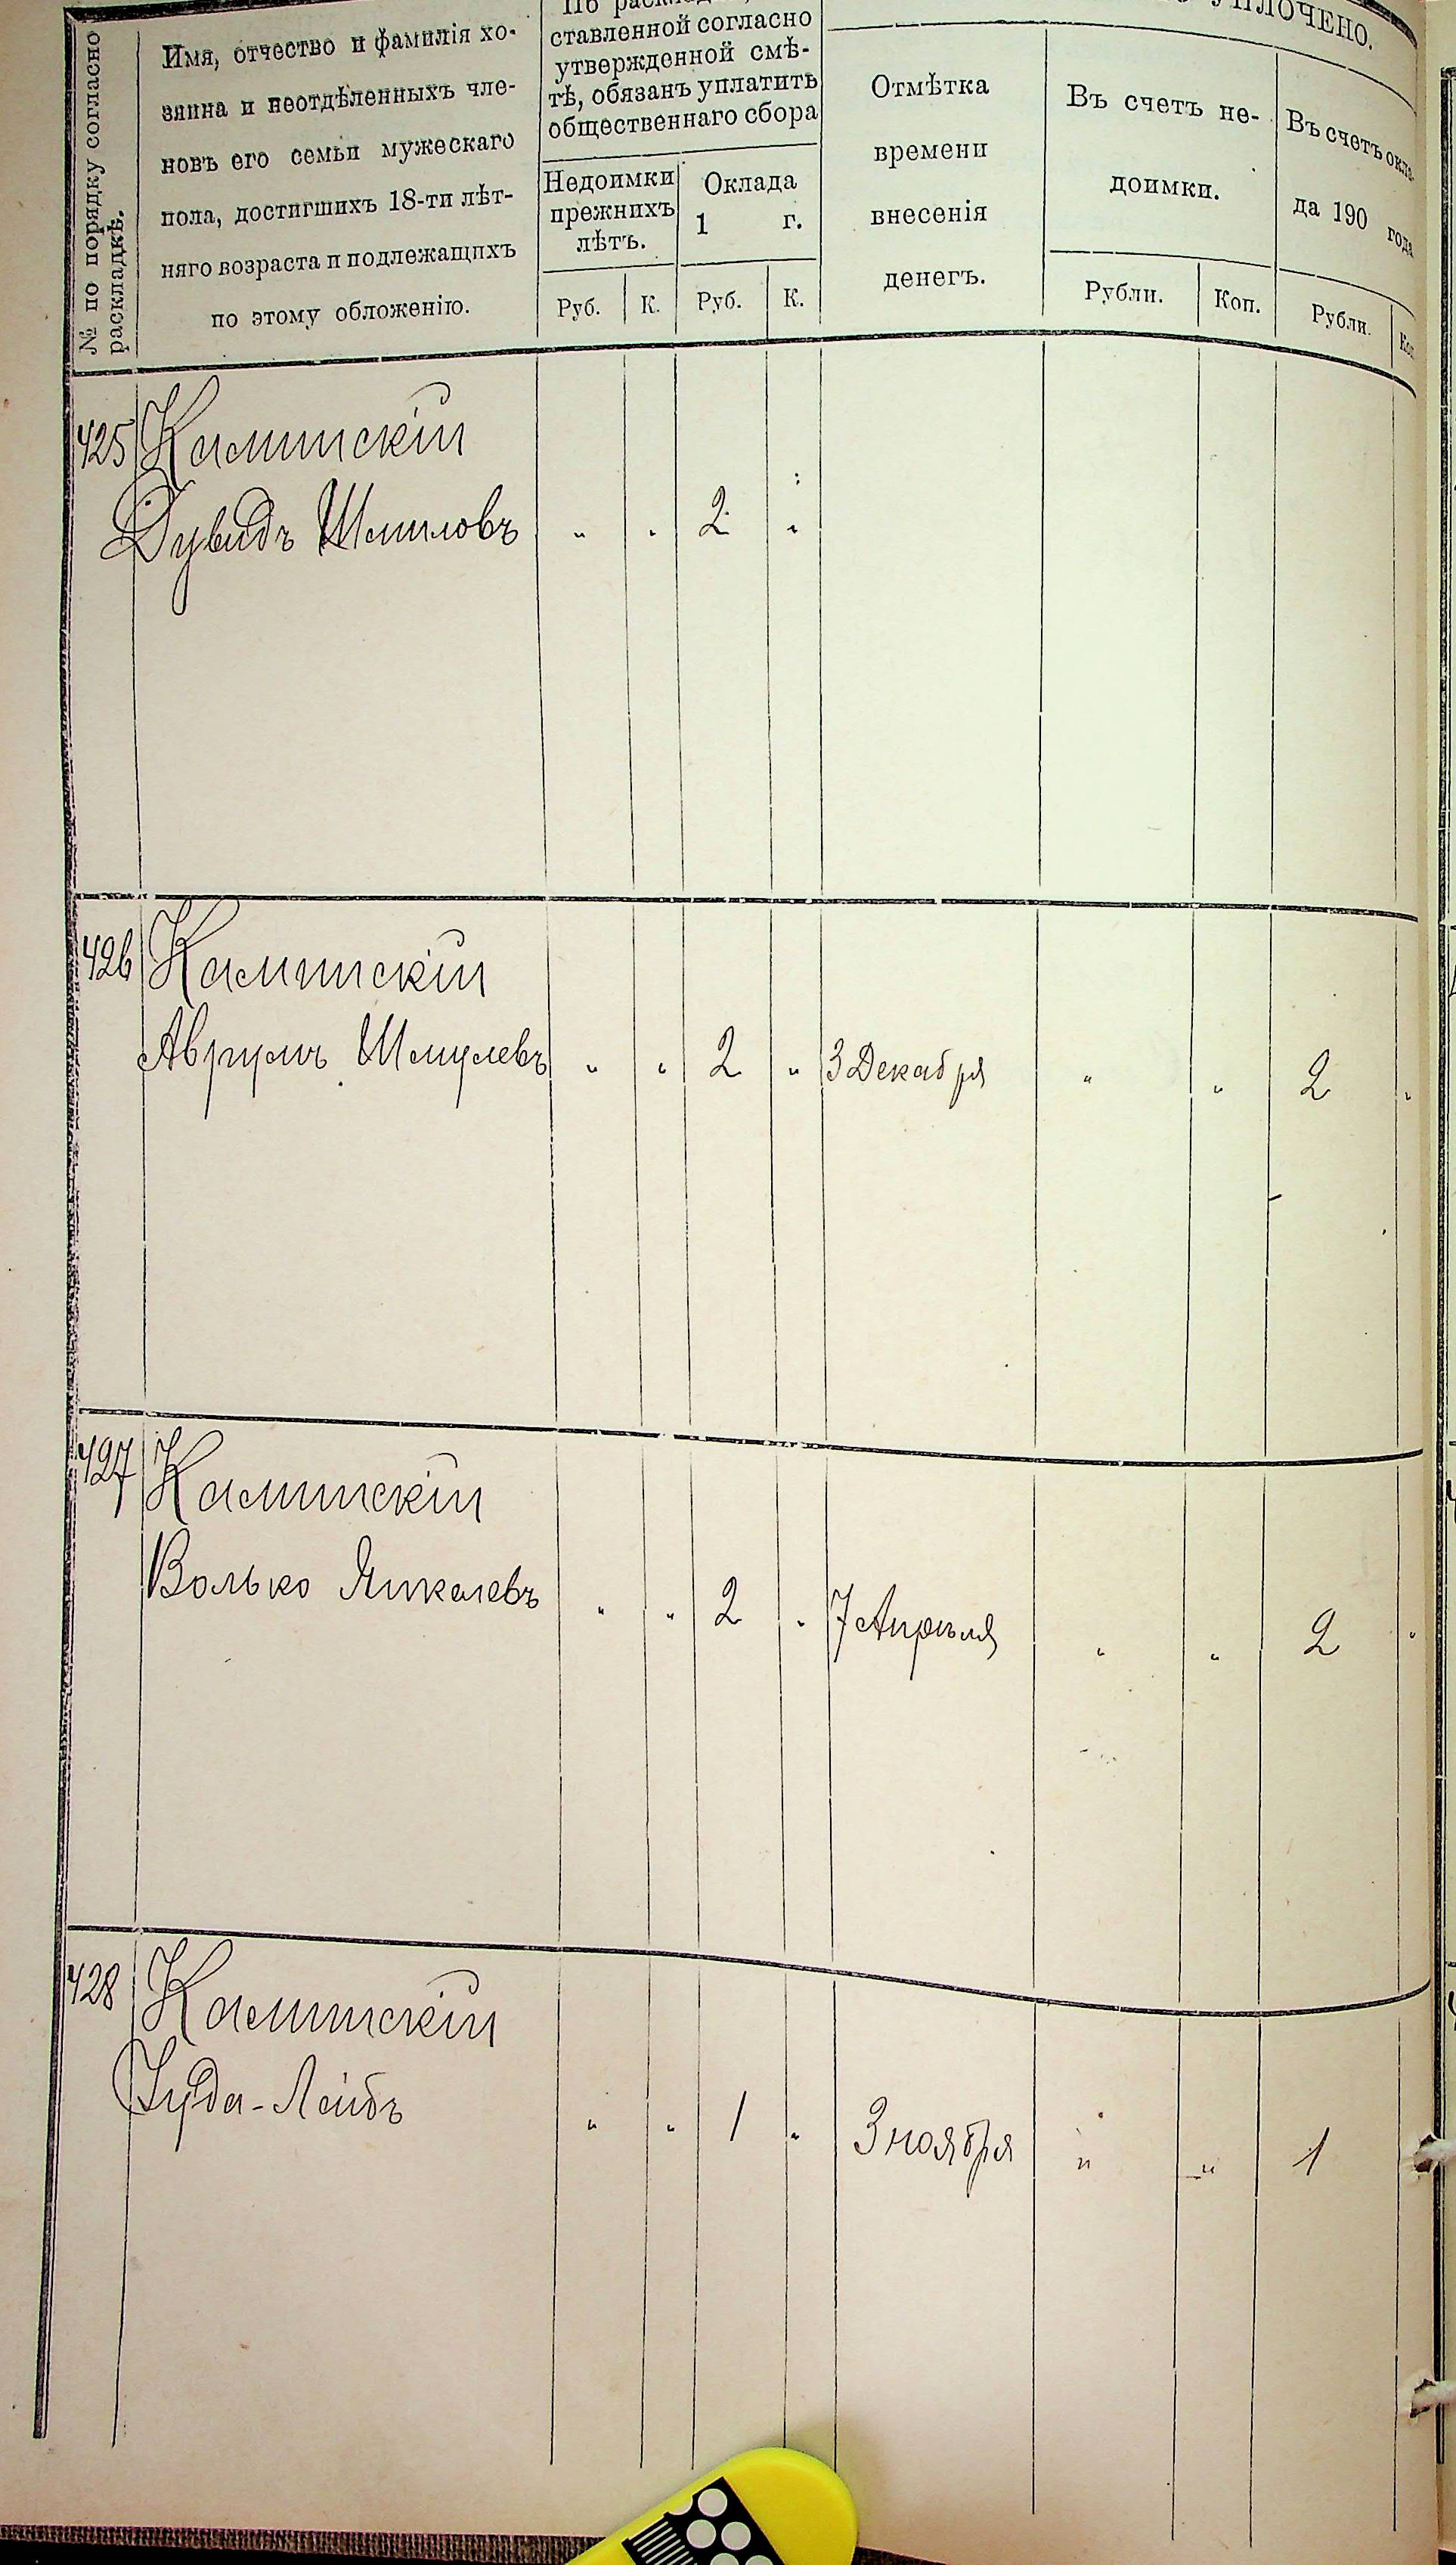 УПЛОЧЕНО.
№ по порядку согласно
раскладкѣ.
Имя, отчество и фамилія хо-
зяина и неотдѣленныхъ чле-
новъ его семьи мужескаго
пола, достигшихъ 18-ти лѣт-
няго возраста и подлежащихъ
по этому обложенію.
ставленной согласно
утвержденной смѣ-
тѣ, обязанъ уплатить
общественнаго сбора
Недоимки
прежнихъ
лѣтъ.
Оклада
1 г.
Отмѣтка
времени
внесенія
денегъ.
Въ счетъ не-
доимки.
Въ счетъ окла-
да 190 года
Руб. К. Руб. К. Рубли. Коп. Рубли. Коп
425 Каминскій
Дувидъ Шмиловъ „ „ 2 „
426 Каминскій
Аврумъ Шмулевъ „ „ 2 „ 3 Декабря „ „ 2 „
427 Каминскій
Волько Янкелевъ „ „ 2 „ 7 Апрѣля „ „ 2 „
428 Каминскій
Іуда-Лейбъ „ „ 1 „ 3 ноября „ „ 1